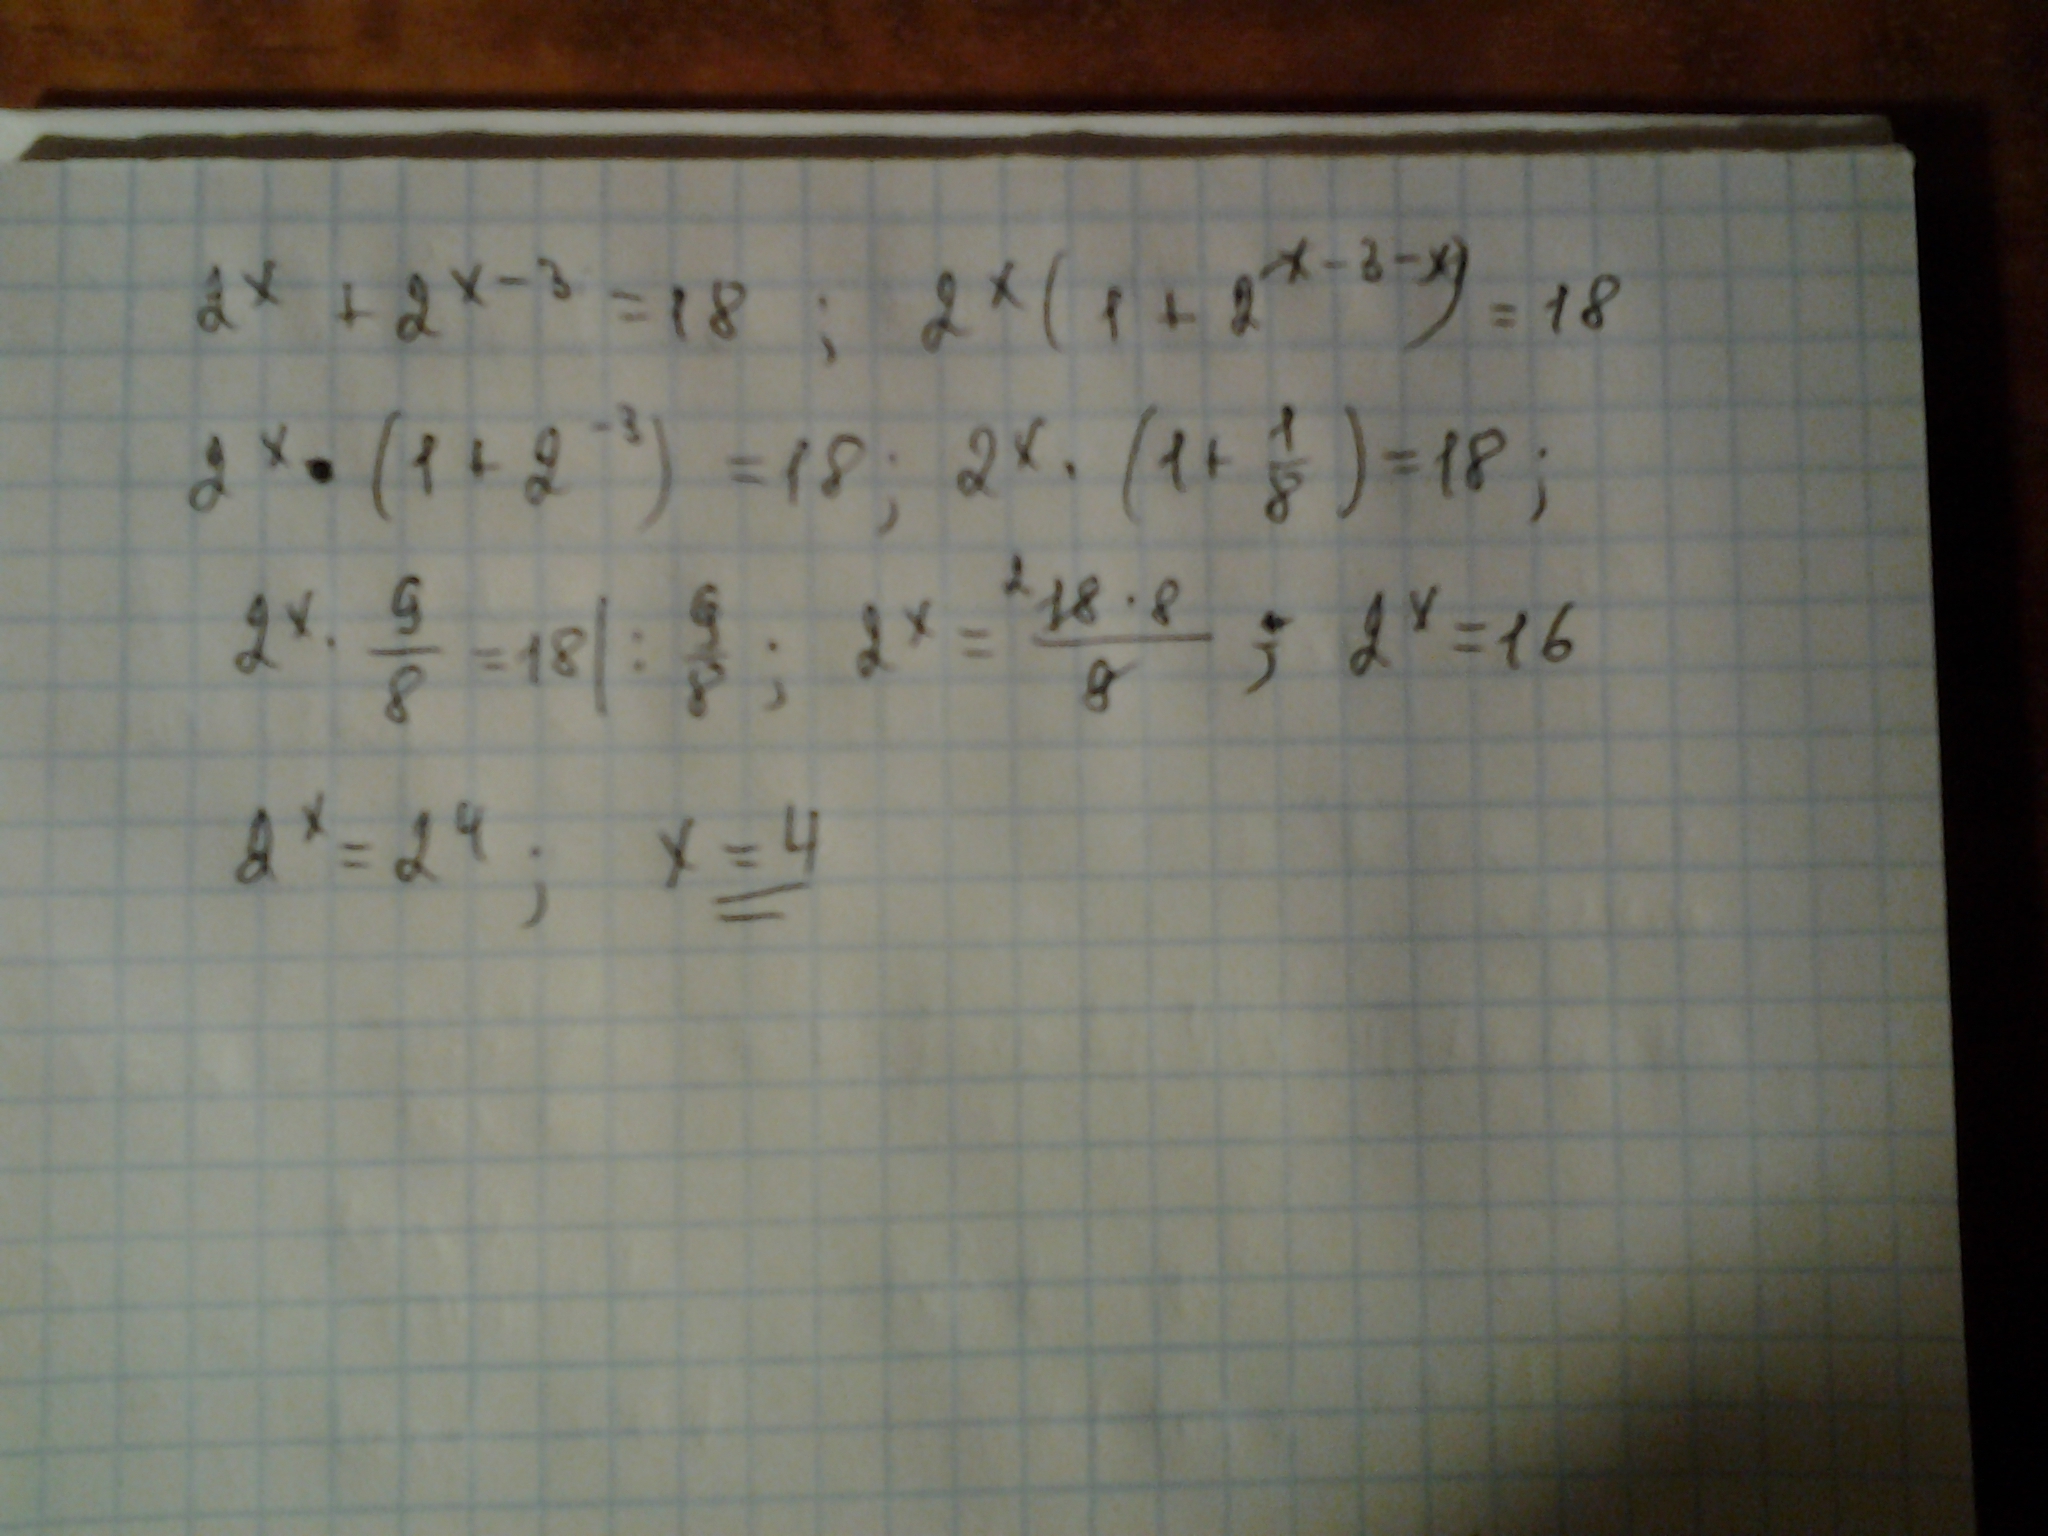 2^x + 2^{x-3} = 18 ; 2^x (1 + 2^{x-3-x}) = 18
2^x · (1 + 2^{-3}) = 18; 2^x · (1 + 1/8) = 18;
2^x · 9/8 = 18 | : 9/8; 2^x = ²18·8/9 ; 2^x = 16
2^x = 2^4 ; x = 4